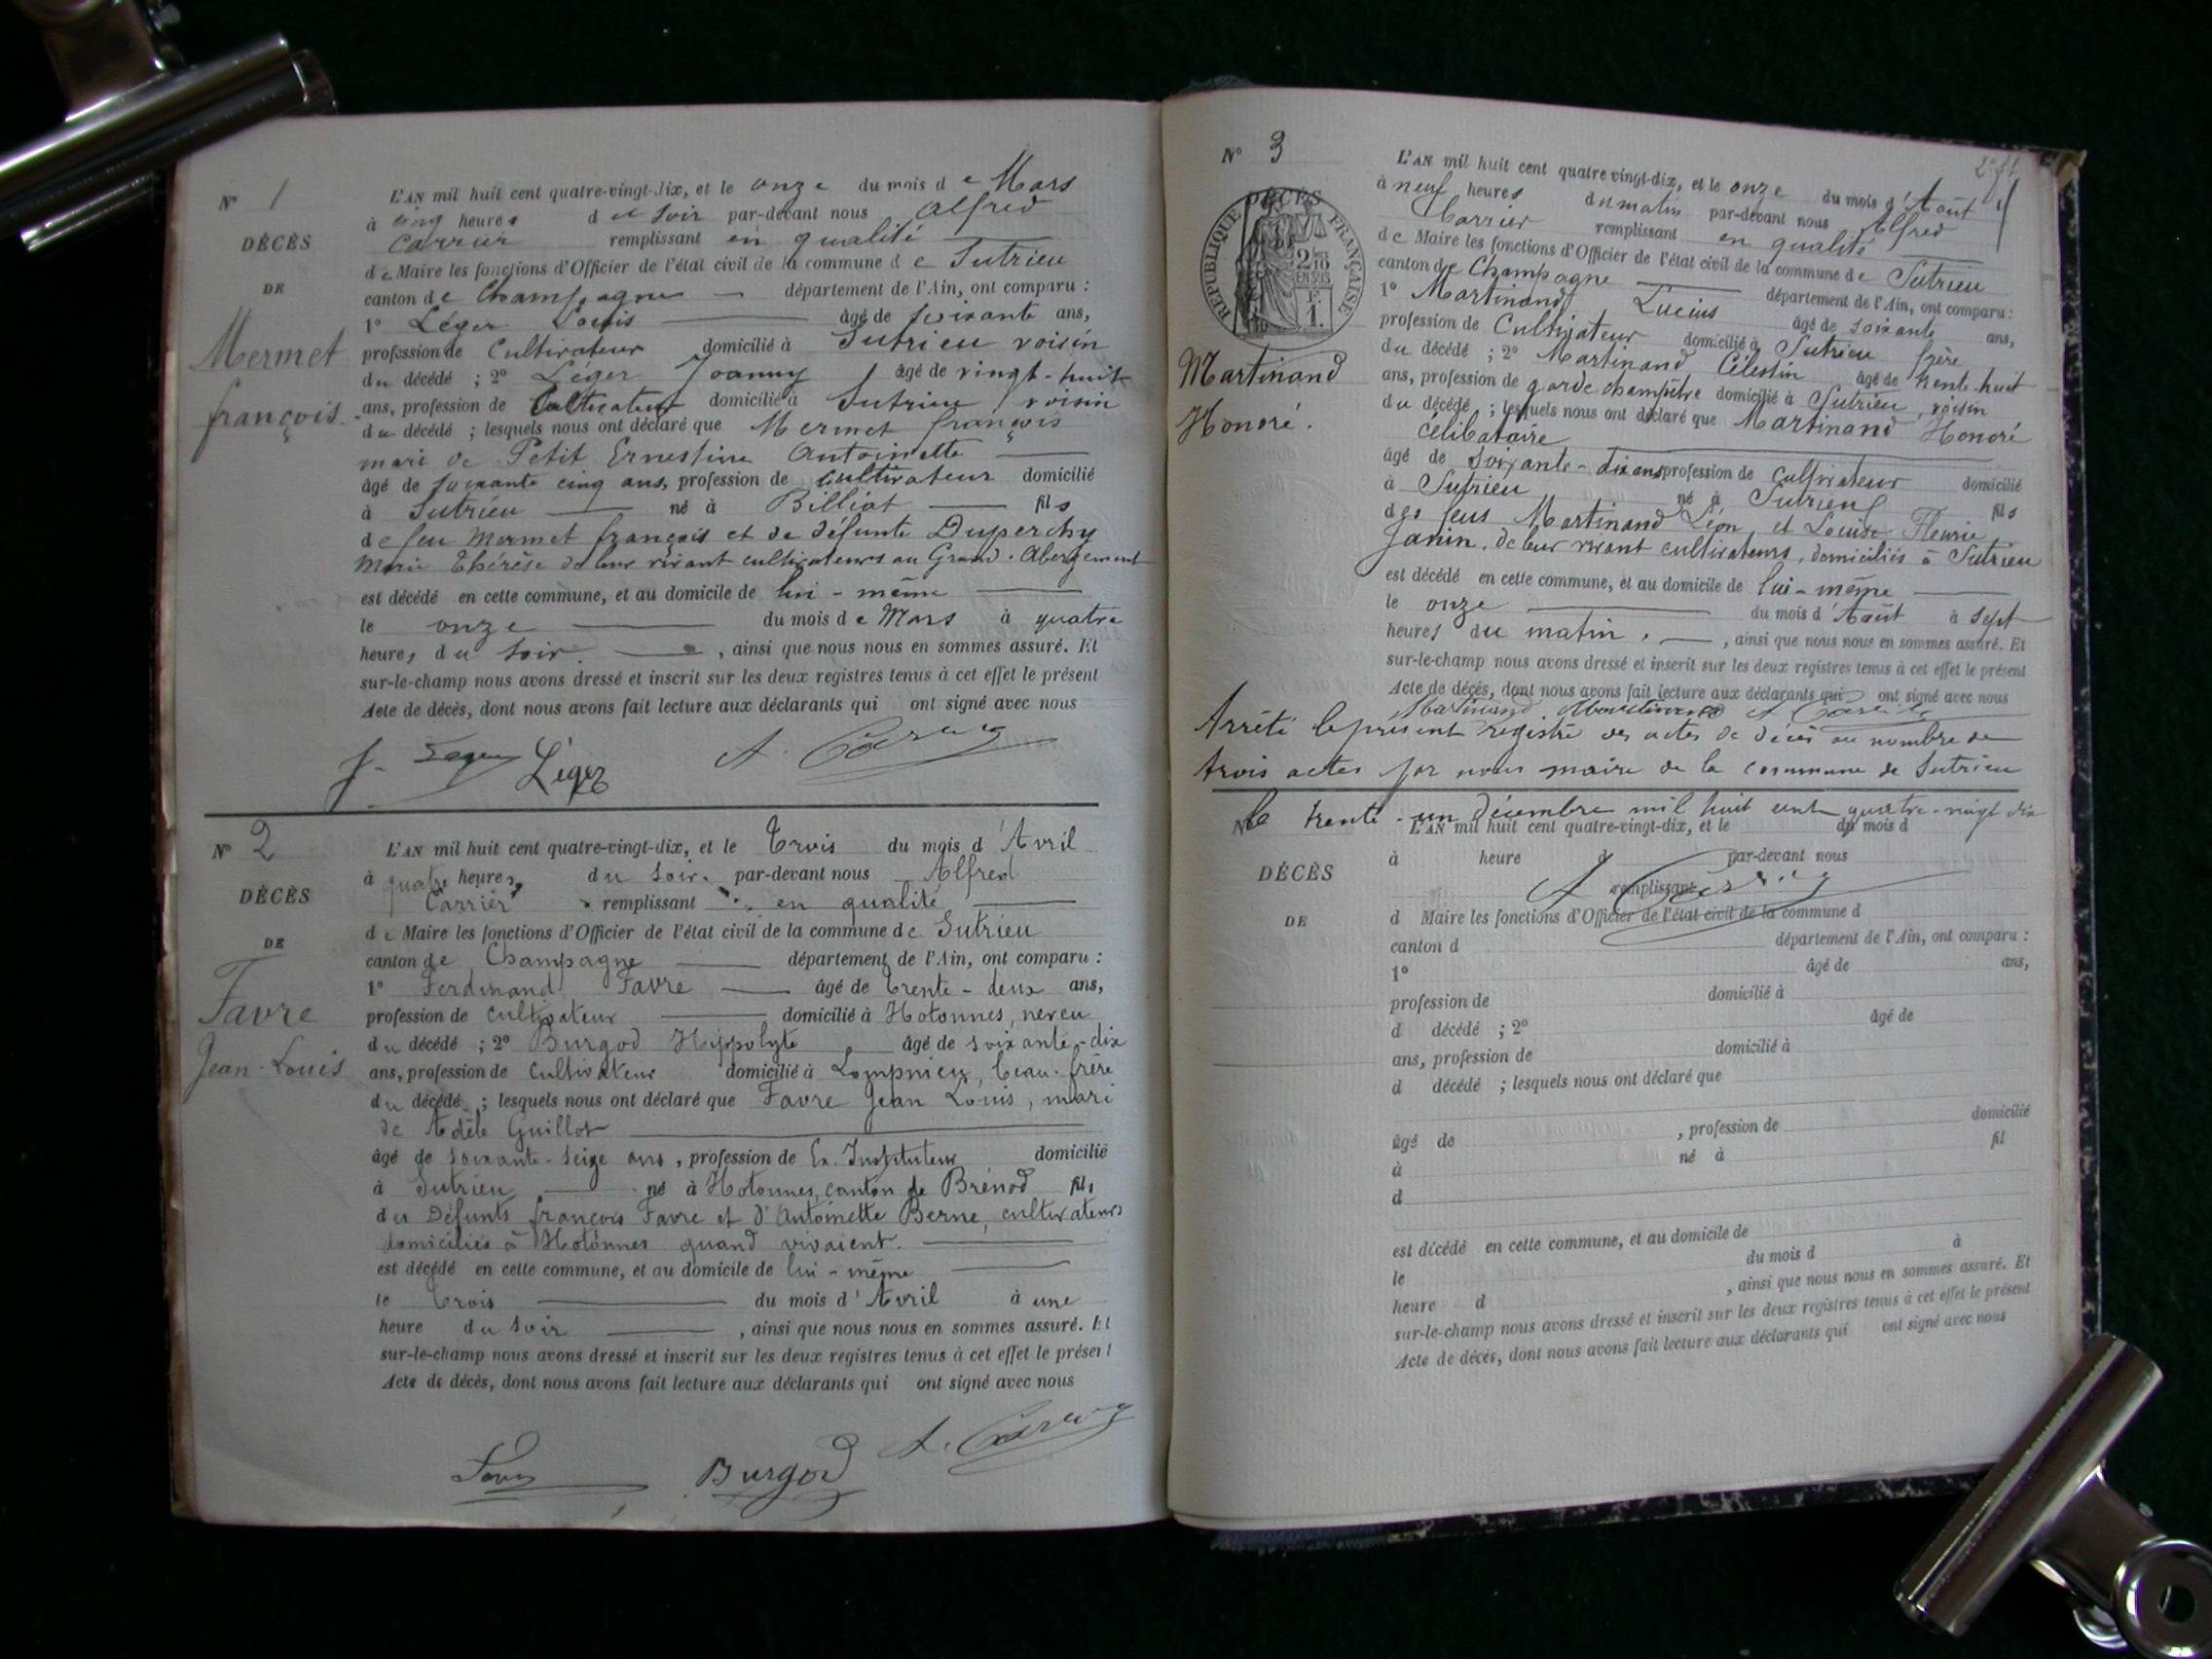 N° 1
L'AN mil huit cent quatre-vingt-dix, et le onze du mois de Mars
à cinq heures du soir par-devant nous Alfred
DÉCÈS
Carrier remplissant en qualité
de Maire les fonctions d'Officier de l'état civil de la commune de Sutrieu
DE
canton de Champagne département de l'Ain, ont comparu :
1° Léger Louis âgé de soixante ans,
Mermet
profession de Cultivateur domicilié à Sutrieu voisin
du décédé ; 2° Léger Joanny âgé de vingt-huit
françois.
ans, profession de Cultivateur domicilié à Sutrieu, voisin
du décédé ; lesquels nous ont déclaré que Mermet françois
mari de Petit Ernestine Antoinette
âgé de soixante cinq ans, profession de cultivateur domicilié
à Sutrieu né à Billiat fils
de feu Mermet françois et de défunte Duperchy
Marie Thérèse de leur vivant cultivateurs au Grand-Abergement
est décédé en cette commune, et au domicile de lui-même
le onze du mois de Mars à quatre
heures du soir. , ainsi que nous nous en sommes assuré. Et
sur-le-champ nous avons dressé et inscrit sur les deux registres tenus à cet effet le présent
Acte de décès, dont nous avons fait lecture aux déclarants qui ont signé avec nous
J. Leger Léger A. Carrier
N° 2
L'AN mil huit cent quatre-vingt-dix, et le Trois du mois d'Avril
à quatre heures du soir. par-devant nous Alfred
DÉCÈS
Carrier remplissant en qualité
de Maire les fonctions d'Officier de l'état civil de la commune de Sutrieu
DE
canton de Champagne département de l'Ain, ont comparu :
1° Ferdinand Favre âgé de trente-deux ans,
Favre
profession de cultivateur domicilié à Hotonnes, neveu
du décédé ; 2° Burgod Hippolyte âgé de soixante-dix
Jean-Louis
ans, profession de Cultivateur domicilié à Lompnieu, beau-frère
du décédé ; lesquels nous ont déclaré que Favre Jean Louis, mari
de Adèle Guillot
âgé de soixante-seize ans, profession de Ex. Instituteur domicilié
à Sutrieu né à Hotonnes, canton de Brénod fils
des Défunts françois Favre et d'Antoinette Berne, cultivateurs
domiciliés à Hotonnes quand vivaient.
est décédé en cette commune, et au domicile de lui-même
le trois du mois d'Avril à une
heure du soir , ainsi que nous nous en sommes assuré. Et
sur-le-champ nous avons dressé et inscrit sur les deux registres tenus à cet effet le présent
Acte de décès, dont nous avons fait lecture aux déclarants qui ont signé avec nous
Burgod A. Carrier
2e ft
N° 3
L'AN mil huit cent quatre vingt-dix, et le onze du mois d'Août
à neuf heures du matin par-devant nous Alfred
DÉCÈS
RÉPUBLIQUE FRANÇAISE
2/10
EN SUS
1 F.
Carrier remplissant en qualité
de Maire les fonctions d'Officier de l'état civil de la commune de Sutrieu
canton de Champagne département de l'Ain, ont comparu :
1° Martinand Lucius âgé de soixante ans,
profession de Cultivateur domicilié à Sutrieu frère
Martinand
du décédé ; 2° Martinand Célestin âgé de trente-huit
ans, profession de garde champêtre domicilié à Sutrieu, voisin
Honoré.
du décédé ; lesquels nous ont déclaré que Martinand Honoré
célibataire
âgé de soixante-dix ans, profession de cultivateur domicilié
à Sutrieu né à Sutrieu fils
des feus Martinand Léon et Louise Fleurie
Janin, de leur vivant cultivateurs, domiciliés à Sutrieu
est décédé en cette commune, et au domicile de lui-même
le onze du mois d'Août à sept
heures du matin. , ainsi que nous nous en sommes assuré. Et
sur-le-champ nous avons dressé et inscrit sur les deux registres tenus à cet effet le présent
Acte de décès, dont nous avons fait lecture aux déclarants qui ont signé avec nous
Martinand Martinand A Carrier
Arrêté le présent registre des actes de décès au nombre de
trois actes par nous maire de la commune de Sutrieu
le trente-un décembre mil huit cent quatre-vingt dix
N°
L'AN mil huit cent quatre-vingt-dix, et le du mois d
à heure d par-devant nous
DÉCÈS
A Carrier
remplissant
DE
d Maire les fonctions d'Officier de l'état civil de la commune d
canton d département de l'Ain, ont comparu :
1° âgé de ans,
profession de domicilié à
d décédé ; 2° âgé de
ans, profession de domicilié à
d décédé ; lesquels nous ont déclaré que
âgé de , profession de domicilié
à né à fil
d
est décédé en cette commune, et au domicile de
le du mois d à
heure d , ainsi que nous nous en sommes assuré. Et
sur-le-champ nous avons dressé et inscrit sur les deux registres tenus à cet effet le présent
Acte de décès, dont nous avons fait lecture aux déclarants qui ont signé avec nous